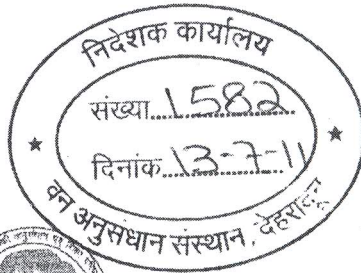 निदेशक कार्यालय
संख्या.....1582.....
दिनांक.....13-7-11
वन अनुसंधान संस्थान, देहरादून